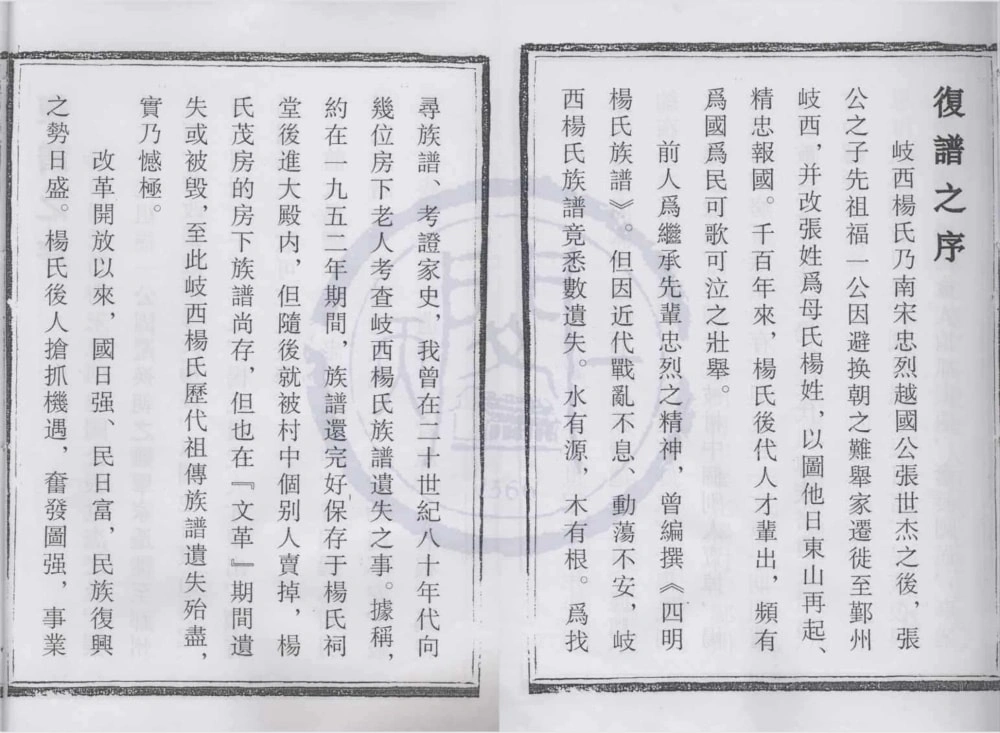 復譜之序
岐西楊氏乃南宋忠烈越國公張世杰之後，張
公之子先祖福一公因避换朝之難舉家遷徙至鄞州
岐西，并改張姓爲母氏楊姓，以圖他日東山再起、
精忠報國。千百年來，楊氏後代人才輩出，頻有
爲國爲民可歌可泣之壯舉。
前人爲繼承先輩忠烈之精神，曾編撰《四明
楊氏族譜》。但因近代戰亂不息、動蕩不安，岐
西楊氏族譜竟悉數遺失。水有源，木有根。爲找
尋族譜、考證家史，我曾在二十世紀八十年代向
幾位房下老人考查岐西楊氏族譜遺失之事。據稱，
約在一九五二年期間，族譜還完好保存于楊氏祠
堂後進大殿内，但隨後就被村中個别人賣掉，楊
氏茂房的房下族譜尚存，但也在『文革』期間遺
失或被毁，至此岐西楊氏歷代祖傳族譜遺失殆盡，
實乃憾極。
改革開放以來，國日强、民日富，民族復興
之勢日盛。楊氏後人搶抓機遇，奮發圖强，事業